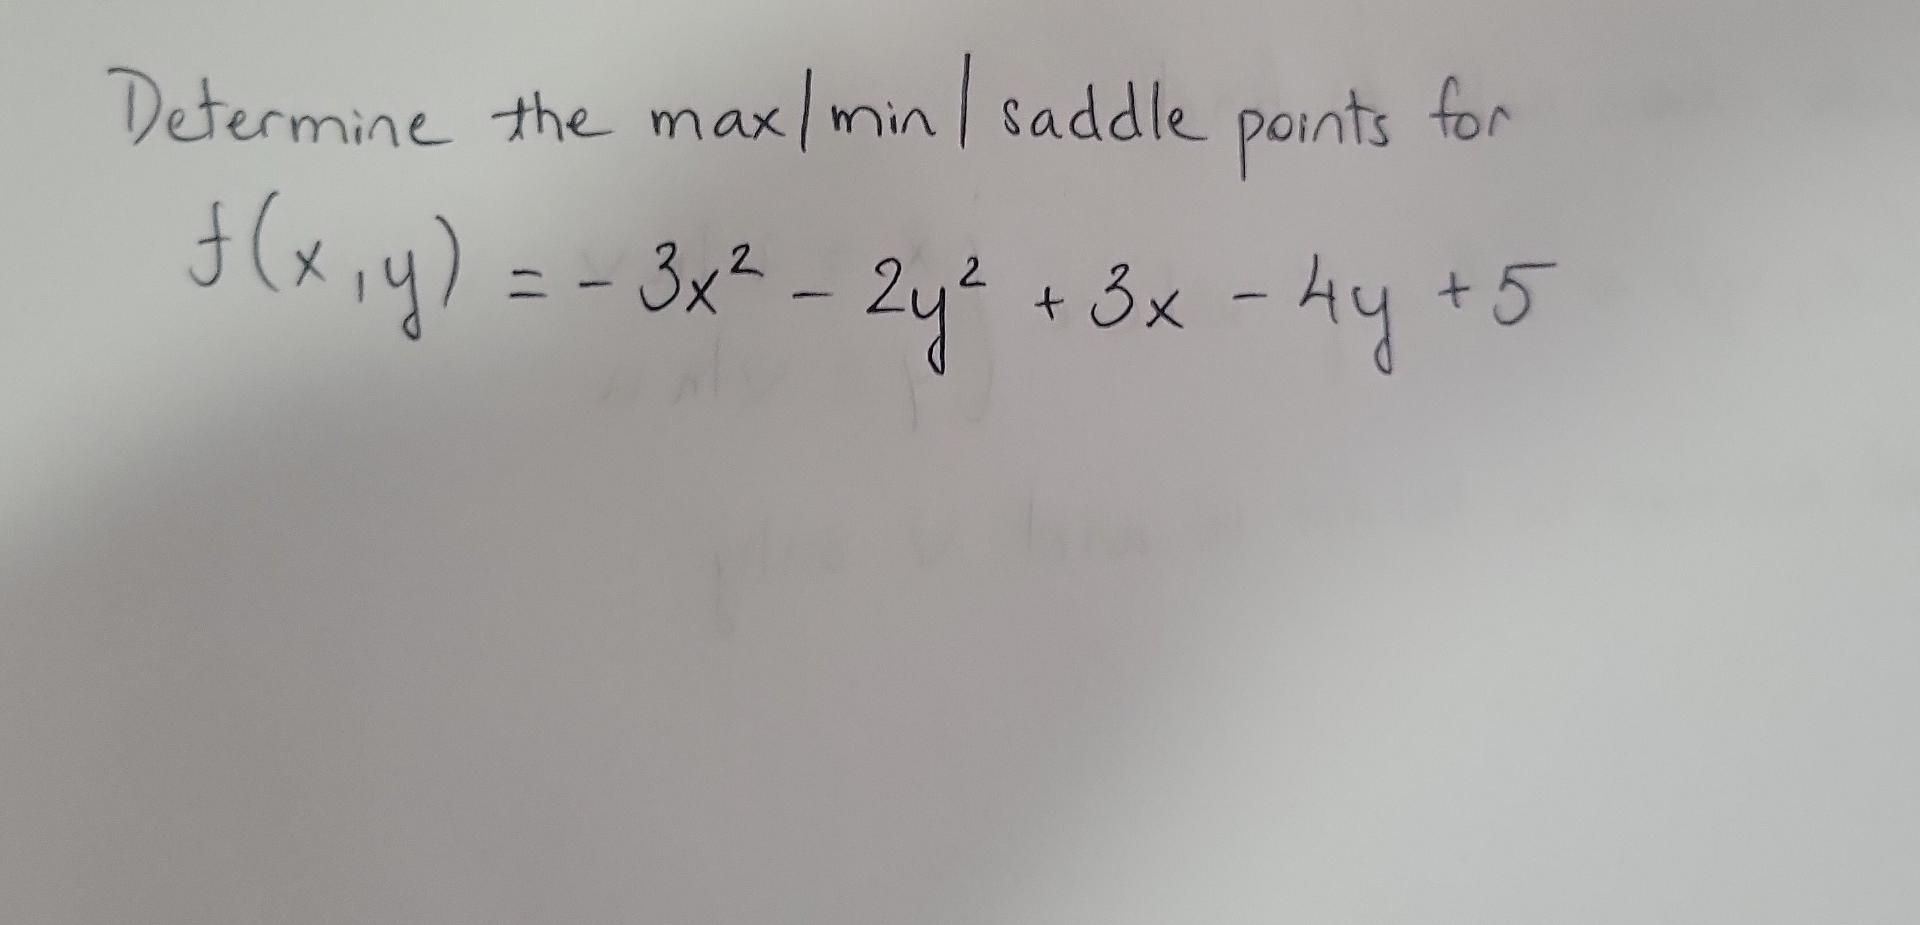 Determine the max/min/saddle points for
f(x,y) = -3x² - 2y² + 3x - 4y + 5